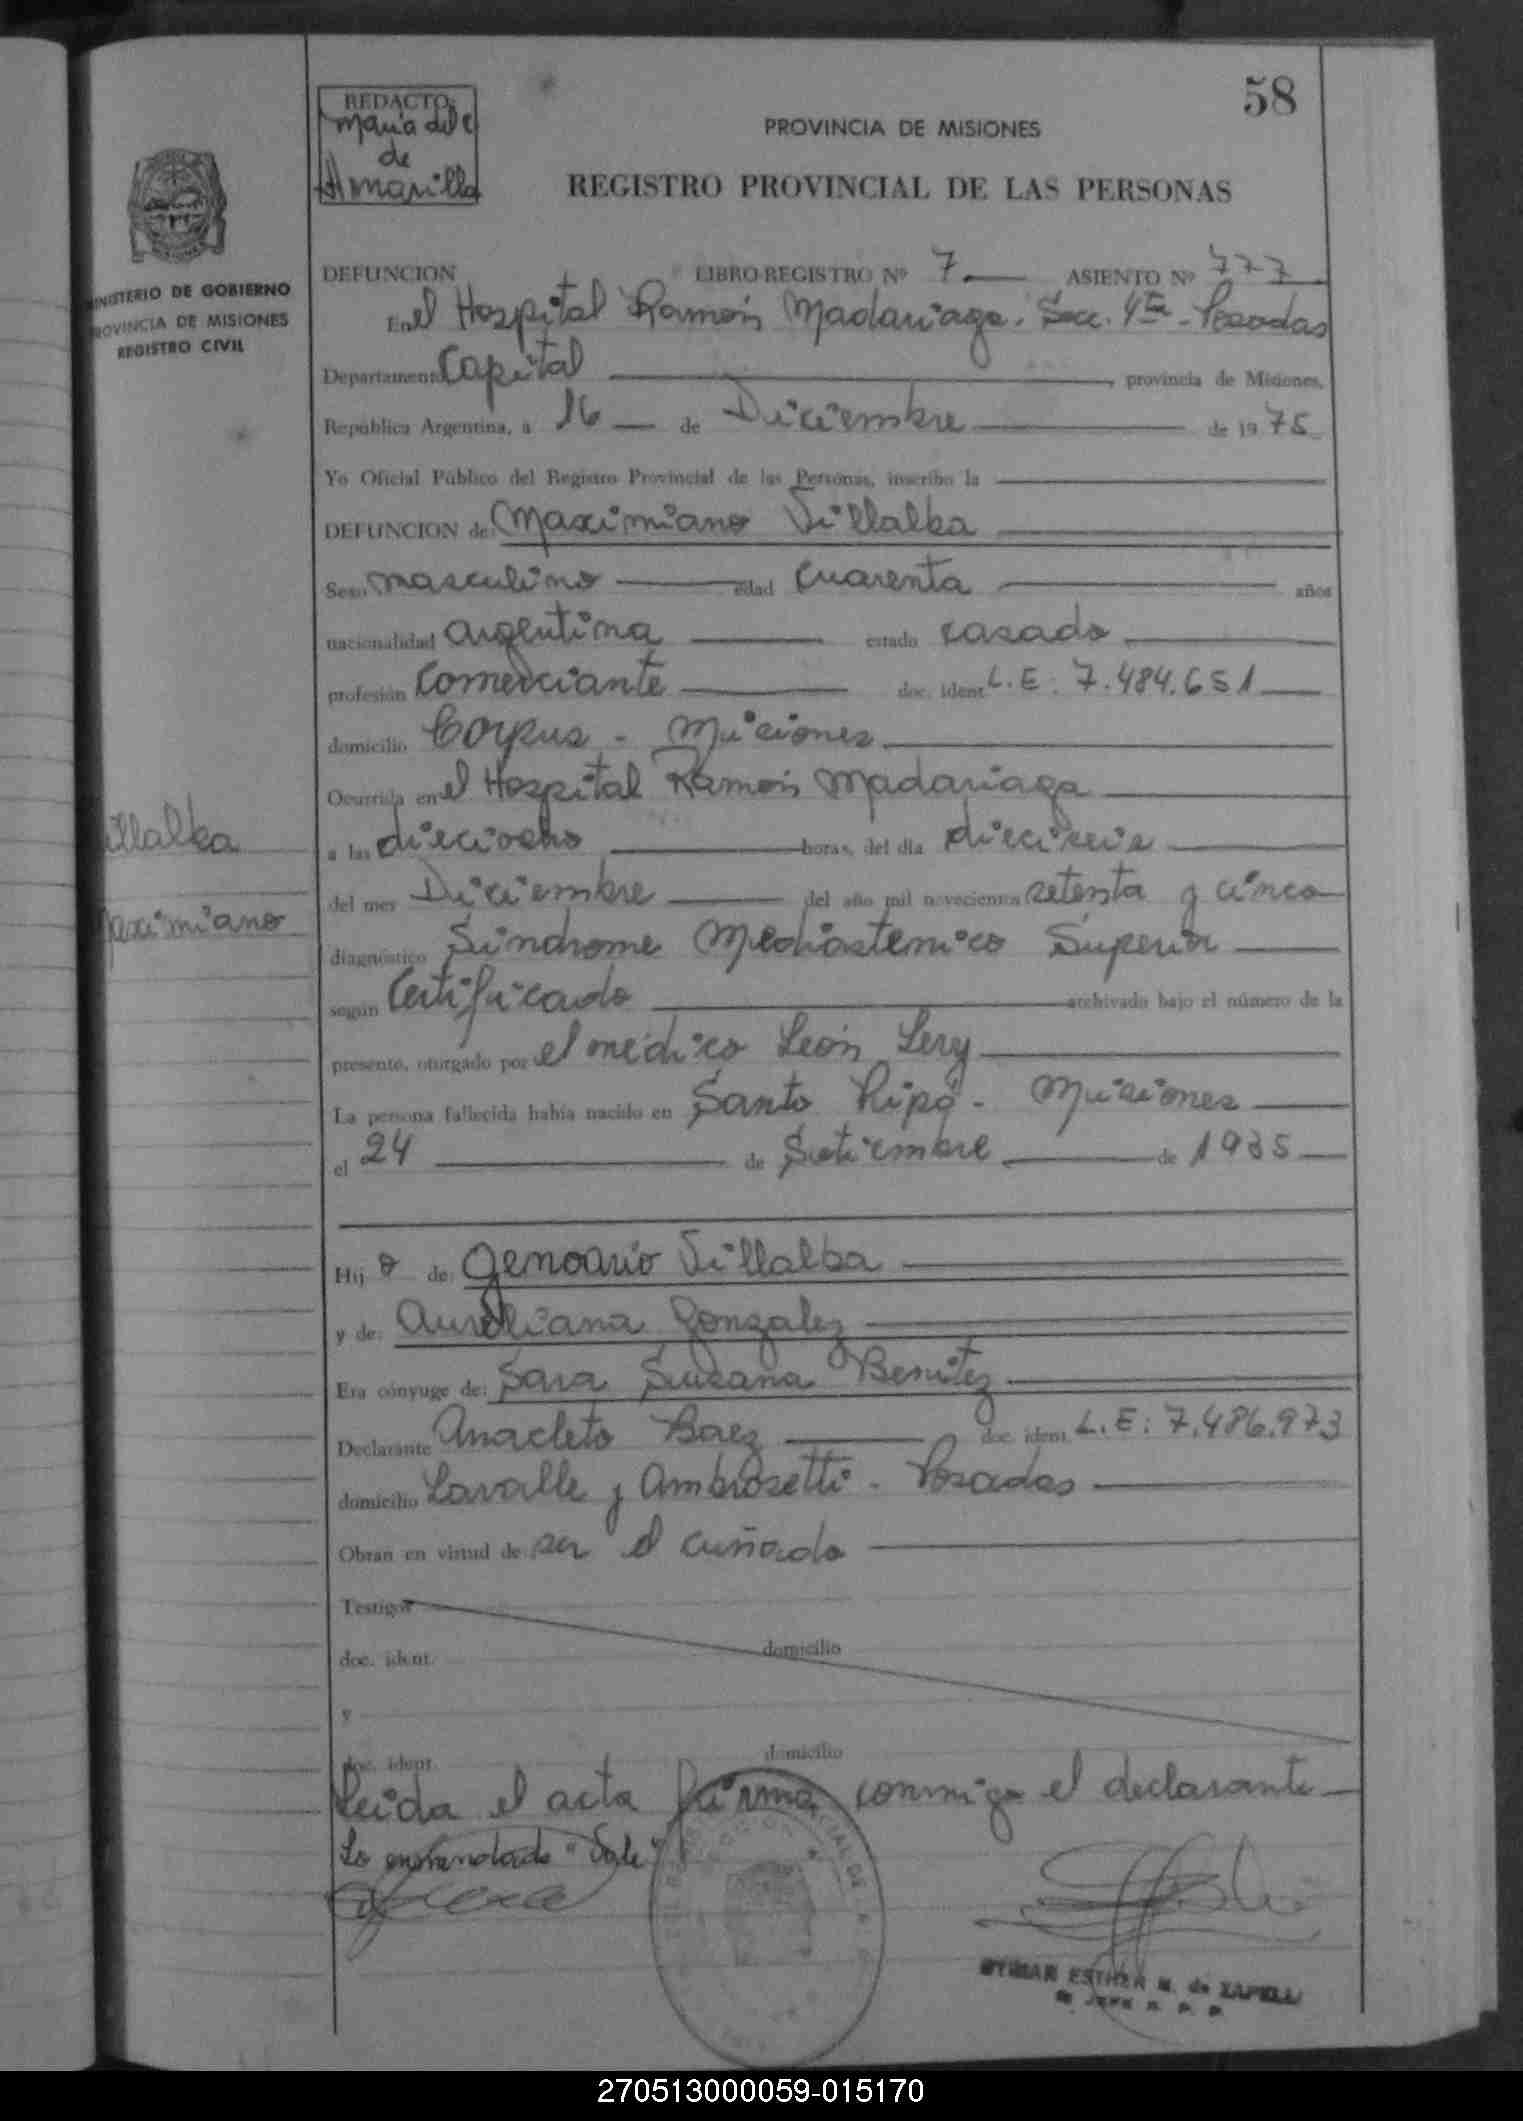 58
REDACTO:
Maria del C
de
Amarilla
PROVINCIA DE MISIONES
REGISTRO PROVINCIAL DE LAS PERSONAS
MINISTERIO DE GOBIERNO
PROVINCIA DE MISIONES
REGISTRO CIVIL
DEFUNCION LIBRO-REGISTRO Nº 7 ASIENTO Nº 777
En el Hospital Ramón Madariaga. Secc. 4ta - Posadas
Departamento Capital, provincia de Misiones,
República Argentina, a 16 de Diciembre de 1975
Yo Oficial Público del Registro Provincial de las Personas, inscribo la
DEFUNCION de: Maximiano Villalba
Sexo masculino edad cuarenta años
nacionalidad argentina estado casado
profesión Comerciante doc. ident. L.E: 7.484.651
domicilio Corpus - Misiones
Ocurrida en el Hospital Ramón Madariaga
illalba
a las dieciocho horas, del día dieciseis
del mes Diciembre del año mil novecientos setenta y cinco
aximiano
diagnóstico Síndrome Mediastenico Superior
según Certificado archivado bajo el número de la
presente, otorgado por el médico León Lery
La persona fallecida había nacido en Santo Pipó - Misiones
el 24 de Setiembre de 1935
Hij o de: Genoario Villalba
y de: Aureliana Gonzalez
Era cónyuge de: Sara Susana Benitez
Declarante Anacleto Baez doc. ident. L.E: 7.486.973
domicilio Lavalle y Ambrosetti - Posadas
Obran en virtud de ser el cuñado
Testigos
doc. ident. domicilio
y
doc. ident. domicilio
Leida el acta firma conmigo el declarante
Lo enmendado "Vale"
ESTHER M. de
270513000059-015170